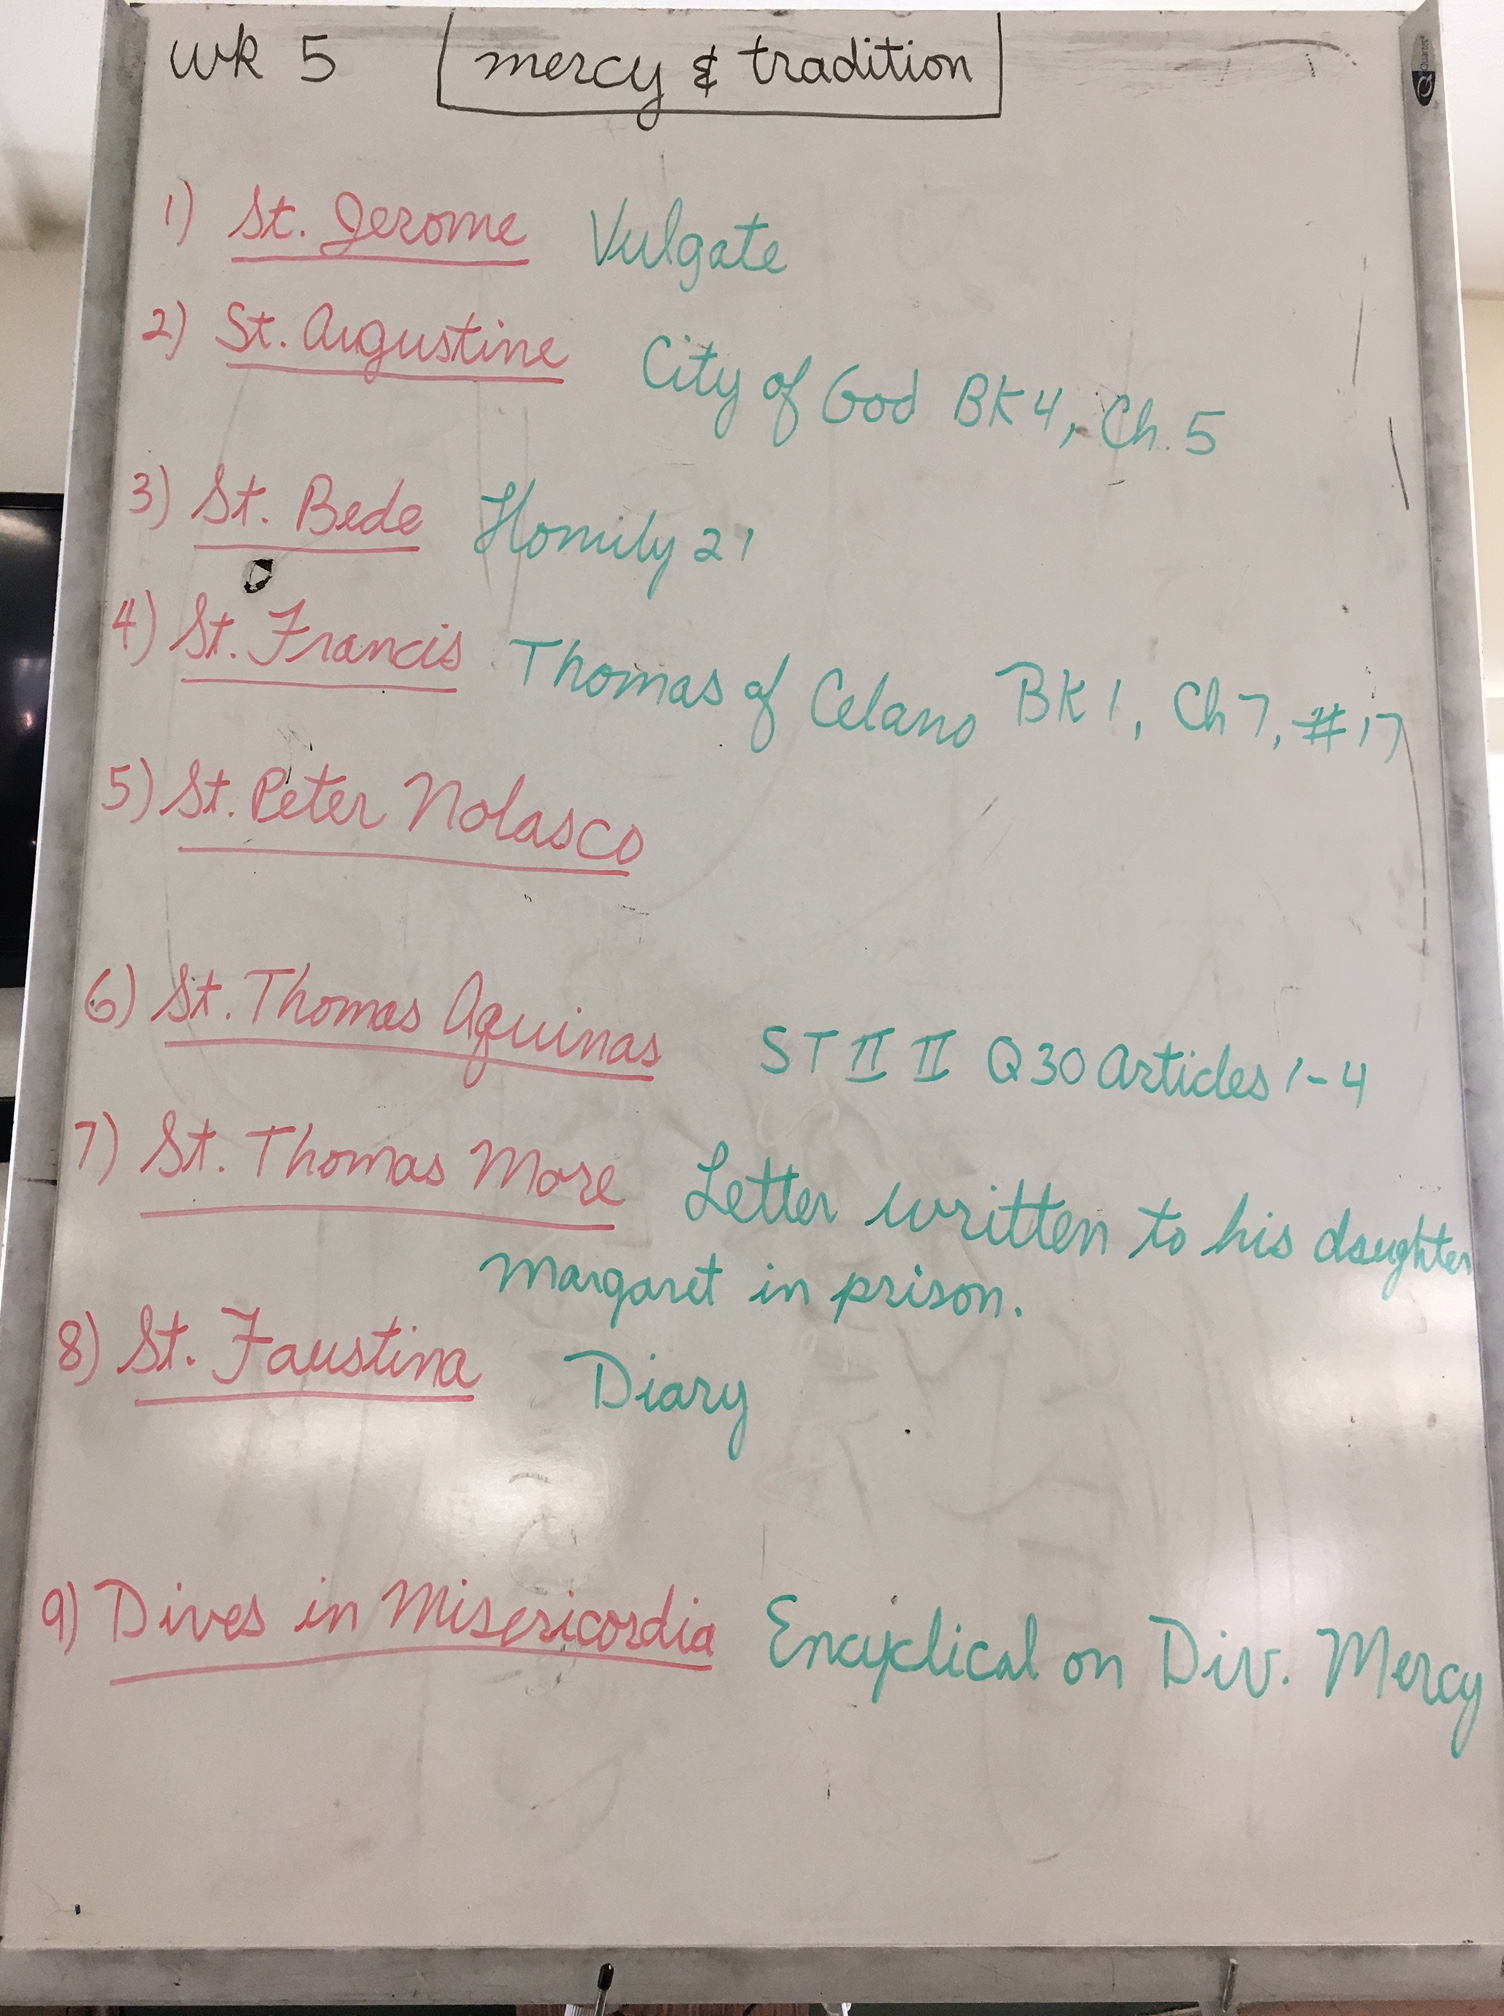 wk 5 mercy & tradition
1) St. Jerome Vulgate
2) St. Augustine City of God BK 4, Ch. 5
3) St. Bede Homily 21
4) St. Francis Thomas of Celano BK 1, Ch 7, #17
5) St. Peter Nolasco
6) St. Thomas Aquinas ST II II Q 30 Articles 1-4
7) St. Thomas More Letter written to his daughter
Margaret in prison.
8) St. Faustina Diary
9) Dives in Misericordia Encyclical on Div. Mercy